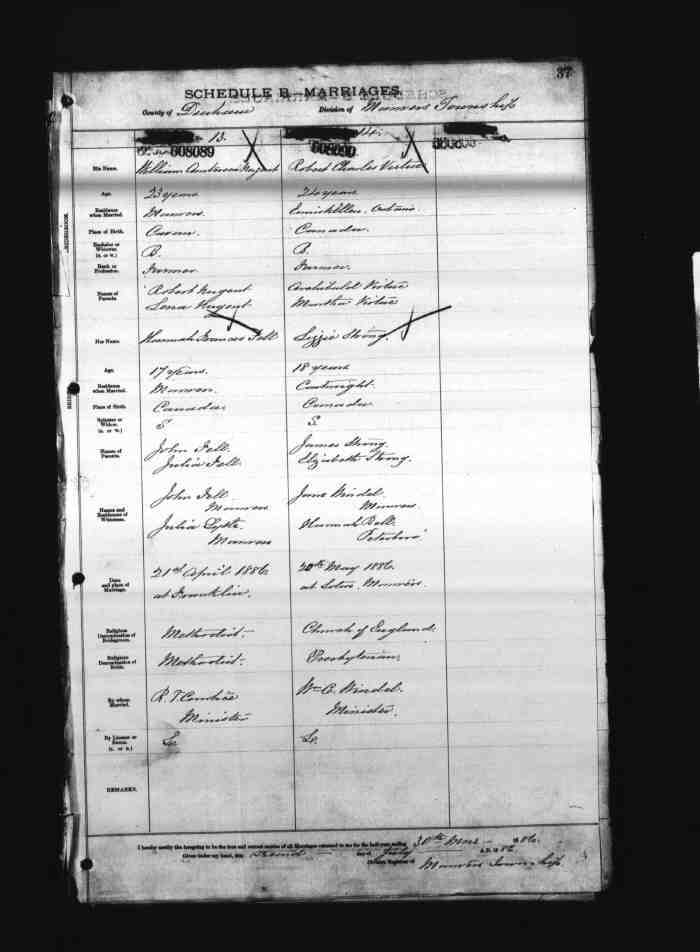 37
SCHEDULE B - MARRIAGES
County of Durham Division of Manvers Township
13. 14.
608089 608090
His Name. William Anderson Nugent Robert Charles Virtue
Age. 23 years 24 years
Residence when Married. Manvers. Enniskillen. Ontario.
Place of Birth. Cavan. Canada.
Bachelor or Widower. (B. or W.) B. B.
Rank or Profession. Farmer. Farmer.
Names of Parents. Robert Nugent Archibald Virtue
Nugent Martha Virtue
Her Name. Hannah Frances Fell Lizzie Strong.
Age. 17 years. 18 years
Residence when Married. Manvers. Cartwright.
Place of Birth. Canada. Canada
Spinster or Widow. (S. or W.) S S.
Names of Parents. John Fell. James Strong.
Julia Fell. Elizabeth Strong.
Names and Residences of Witnesses. John Fell. Jane Windel.
Manvers Manvers
Julia Hannah Bell.
Manvers Peterboro'
Date and place of Marriage. 21st April 1886. 20th May 1886.
at Franklin. at Lotus. Manvers.
Religious Denomination of Bridegroom. Methodist. Church of England.
Religious Denomination of Bride. Methodist. Presbyterian.
By whom Married. R. T. Wm C. Windel.
Minister Minister.
By License or Banns. (L. or B.) L. L.
REMARKS.
I hereby certify the foregoing to be the true and correct entries of all Marriages returned to me for the half-year ending 30th 1886.
Given under my hand, this Second day of July
Division Registrar of Manvers Township